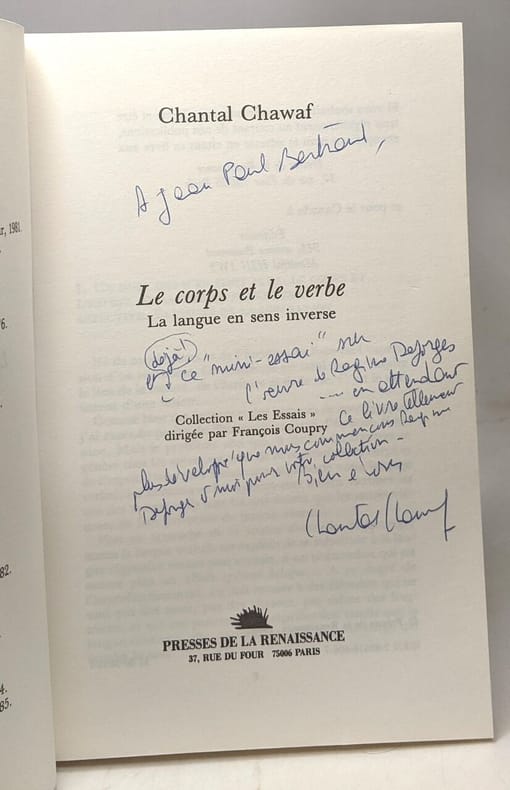 Chantal Chawaf
A Jean Paul Bertrand,
r, 1981.
6.
Le corps et le verbe
La langue en sens inverse
déjà!
ce "mini-essai" sur
l'œuvre de Régine Deforges
Collection « Les Essais »
... en attendant
dirigée par François Coupry
ce livre tellement
plus développé que nous commençons Régine
Deforges & moi pour votre collection -
Bien à vous
Chantal Chawaf
82.
4.
85.
PRESSES DE LA RENAISSANCE
37, RUE DU FOUR 75006 PARIS